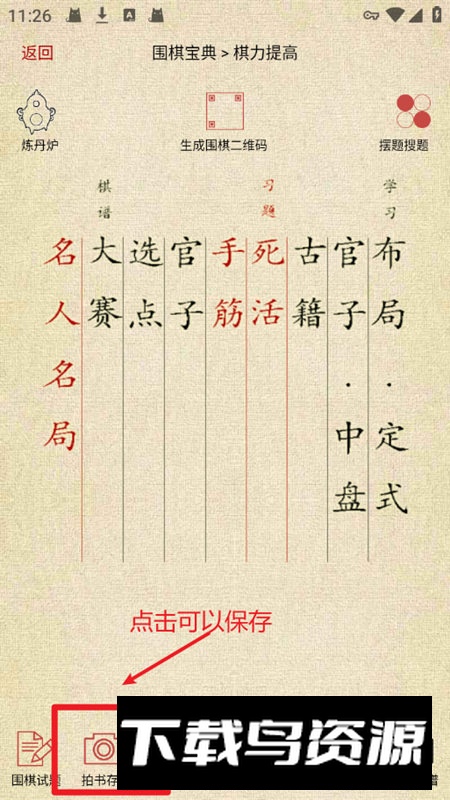 11:26
返回
围棋宝典 > 棋力提高
炼丹炉
生成围棋二维码
摆题搜题
学习
布局·定式
官子·中盘
古籍
习题
死活
手筋
官子
选点
棋谱
大赛
名人名局
点击可以保存
下载鸟资源
围棋试题
拍书存
谱